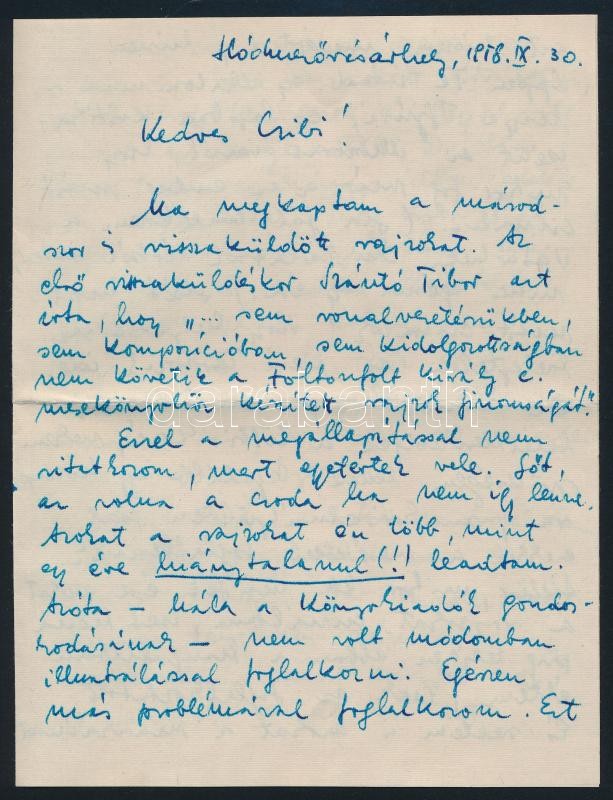 Hódmezővásárhely, 1958. IX. 30.
Kedves Csibi!
Ma megkaptam a másod-
szor is visszaküldött rajzokat. Az
első visszaküldéskor Szántó Tibor azt
írta, hogy „... sem vonalvezetésükben,
sem kompozícióban sem kidolgozottságban
nem követik a Foltonfolt király c.
mesekönyvhöz készített rajzok finomságát."
Ezzel a megállapítással nem
vitatkozom, mert egyetértek vele. Sőt,
az volna a csoda ha nem így lenne.
Azokat a rajzokat én több, mint
egy éve hiánytalanul(!!) leadtam.
Azóta – hála a Könyvkiadók gondos-
kodásának – nem volt módomban
illusztrálással foglalkozni. Egészen
más problémával foglalkozom. Ezt
darabanth